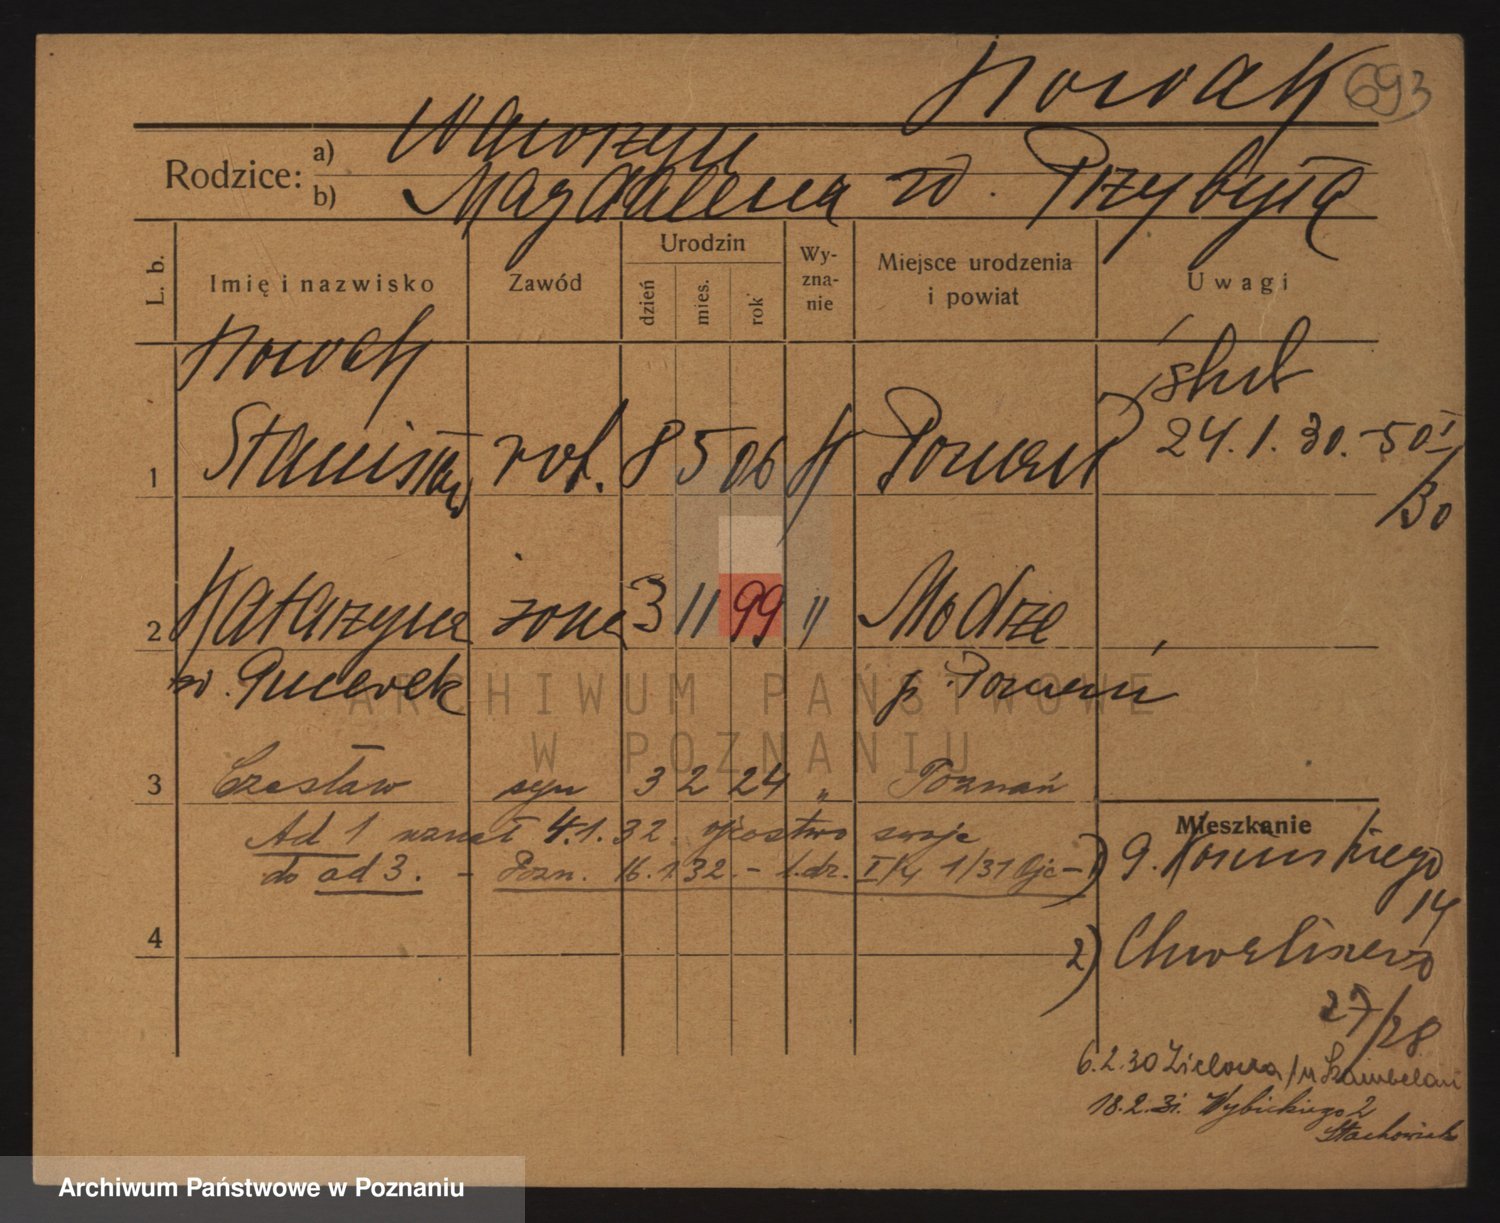 Nowak 693
Rodzice: a) Wawrzyn
b) Magdalena z d. Przybyła
L. b. Imię i nazwisko Zawód Urodzin dzień mies. rok Wy-zna-nie Miejsce urodzenia i powiat Uwagi
Nowak ślub
1 Stanisław rob. 8 5 06 K Poznań 24.1.30.-50 I/30
2 Katarzyna żona 3 11 99 " Modrze
p. Poznań
3 Czesław syn 3 2 24 " Poznań
Ad 1 uznał 4.1.32. ojcostwo swoje
do ad 3. - Pozn. 16.1.32.-
Mieszkanie
1) G.
14
4
2) Chwaliszewo
27/28
6.2.30 Zielona
18.2.31. Wybickiego 2
Stachowiak
ARCHIWUM PAŃSTWOWE
W POZNANIU
Archiwum Państwowe w Poznaniu